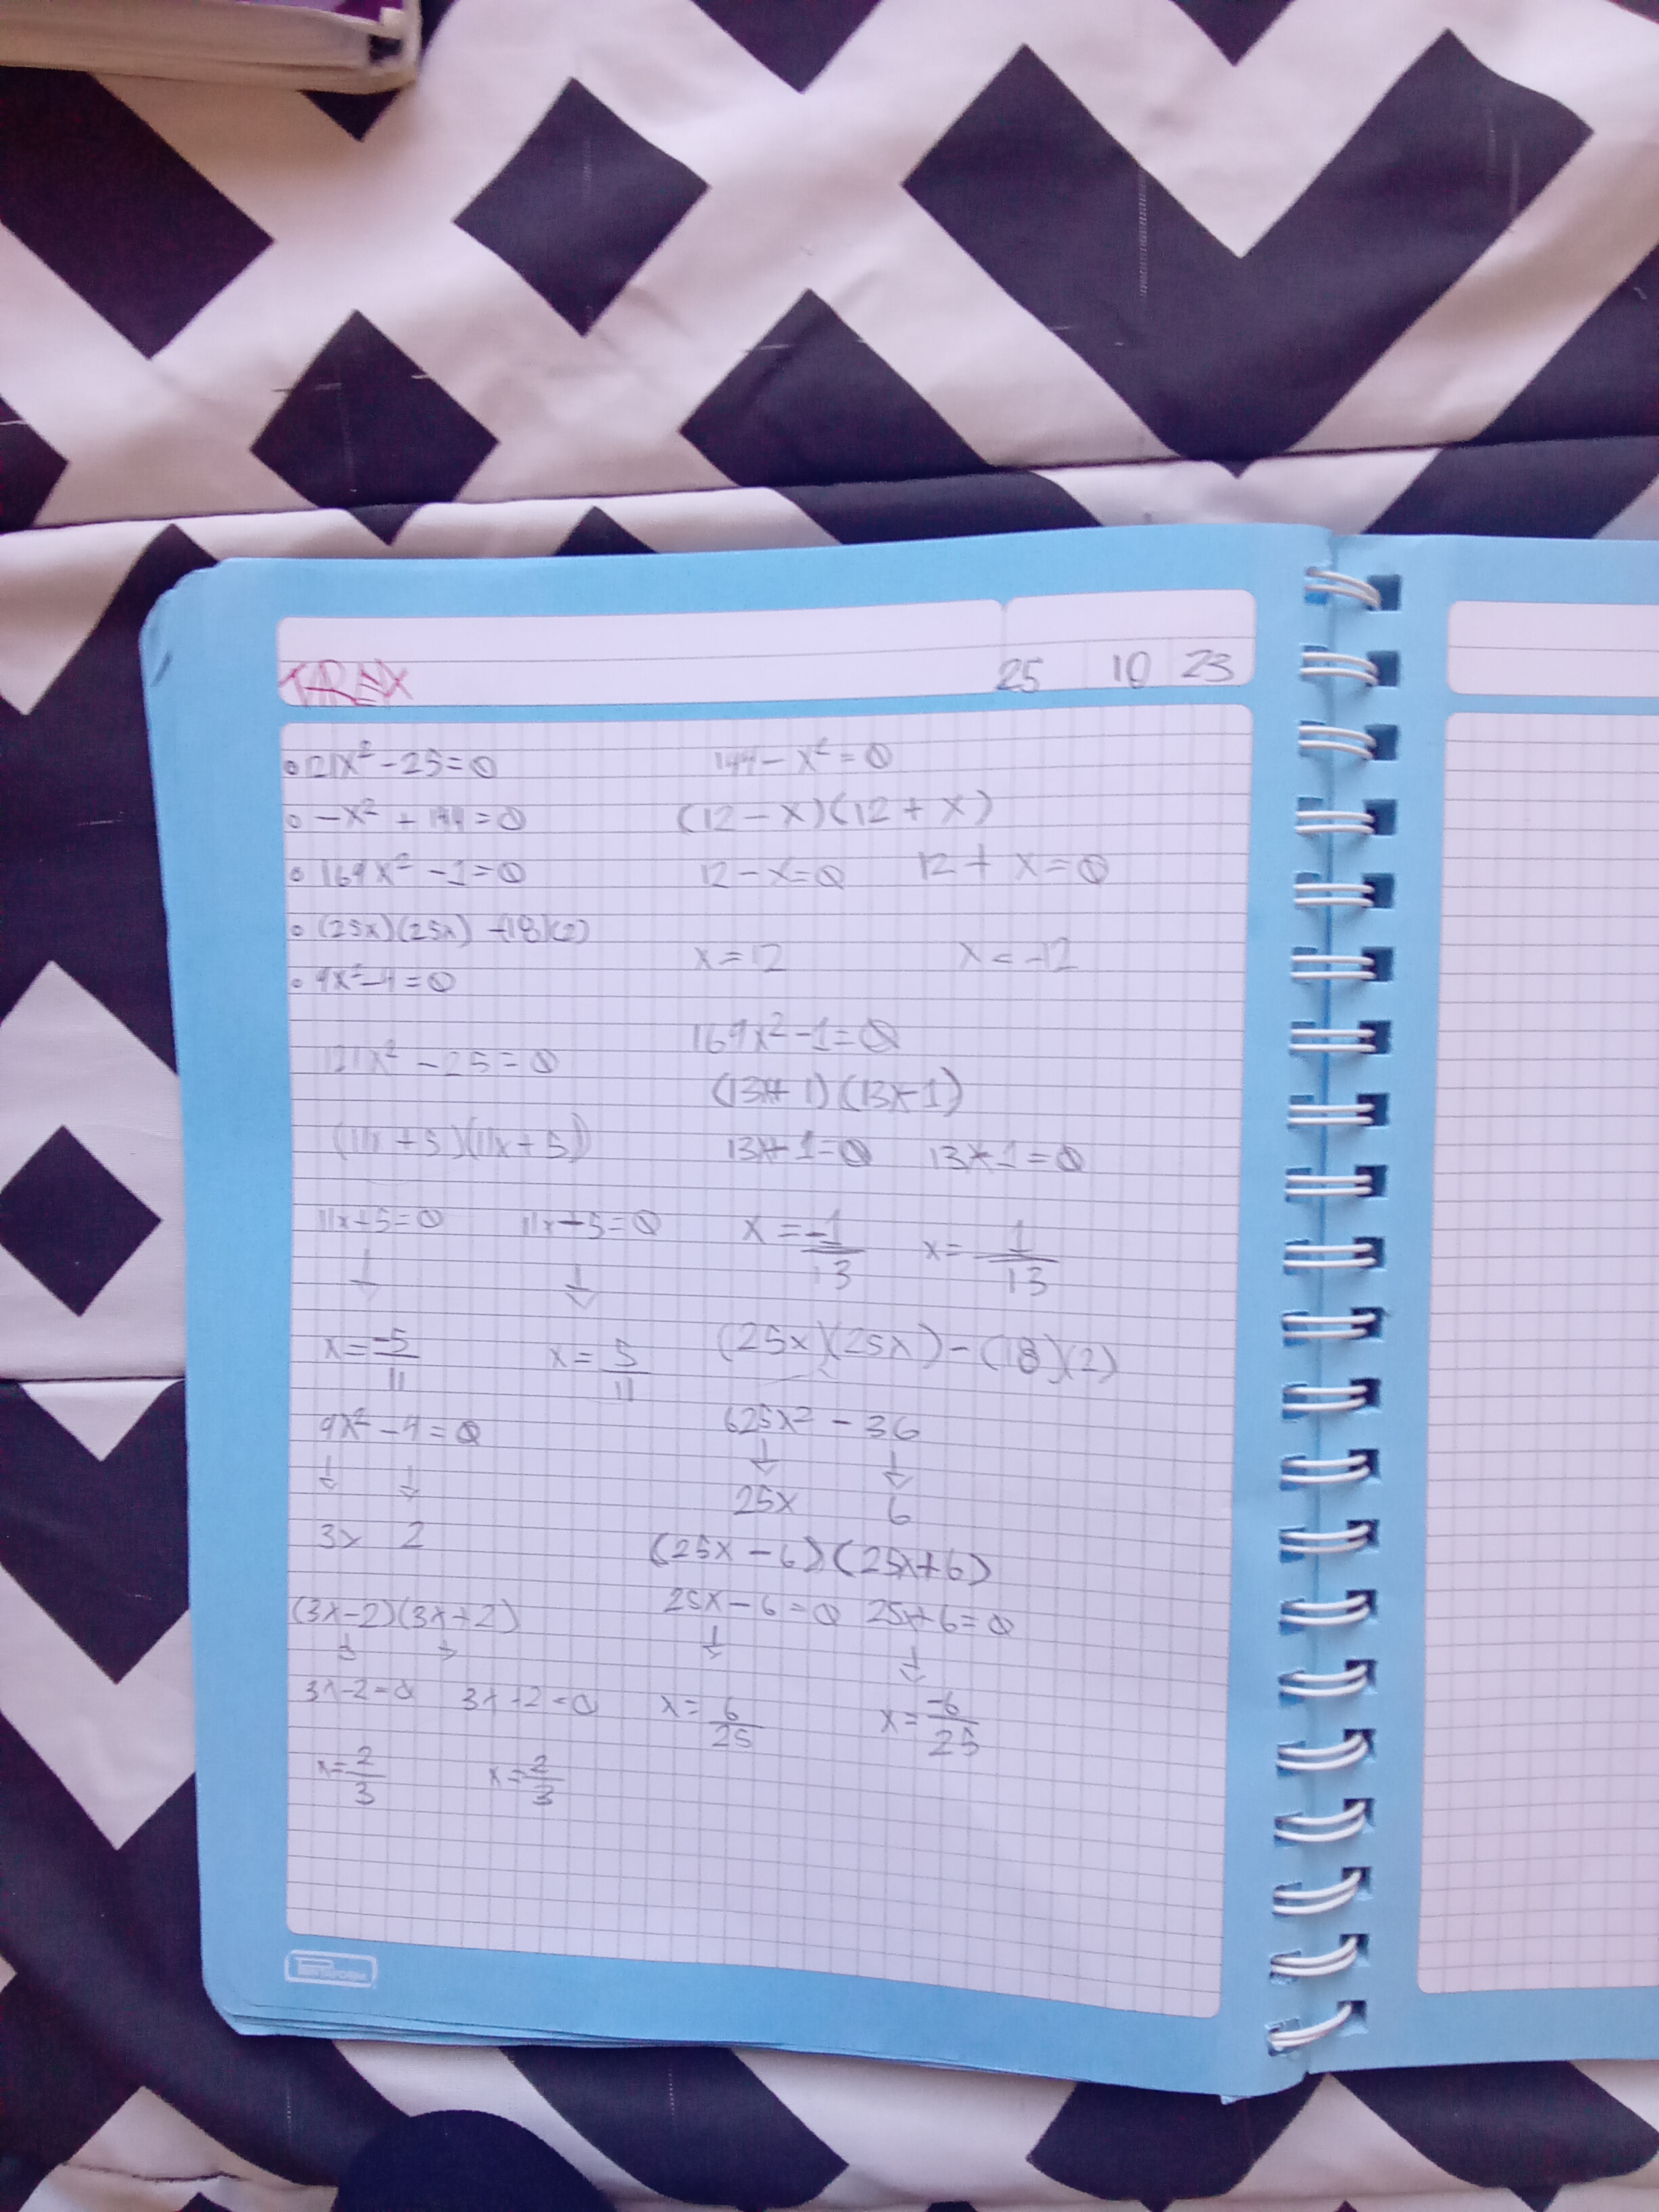 TAREA 25 10 23
121x² - 25 = 0
-x² + 144 = 0
169x² - 1 = 0
(25x)(25x) - (18)(2)
9x² - 4 = 0
121x² - 25 = 0
(11x + 5)(11x + 5)
11x + 5 = 0 11x + 5 = 0
x = -5/11 x = 5/11
9x² - 4 = 0
3x 2
(3x - 2)(3x + 2)
3x - 2 = 0 3x + 2 = 0
x = 2/3 x = 2/3
144 - x² = 0
(12 - x)(12 + x)
12 - x = 0 12 + x = 0
x = 12 x = -12
169x² - 1 = 0
(13x + 1)(13x - 1)
13x + 1 = 0 13x - 1 = 0
x = -1/13 x = 1/13
(25x)(25x) - (18)(2)
625x² - 36
25x 6
(25x - 6)(25x + 6)
25x - 6 = 0 25x + 6 = 0
x = 6/25 x = -6/25